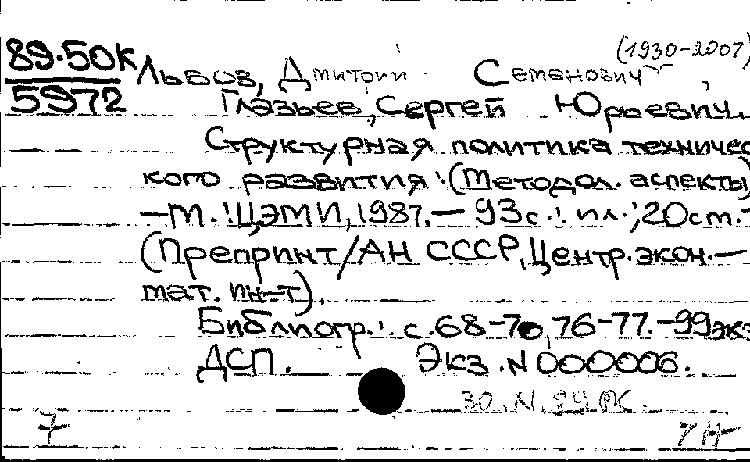 (1930-2007)
89-50К Львов, Дмитрий Семенович
5972 Глазьев, Сергей Юрьевич.
Структурная политика техничес
кого развития: (Методол. аспекты)
—М.: ЦЭМИ, 1987.— 93с.: ил.; 20см.—
(Препринт/АН СССР, Центр. экон.—
мат. ин-т).
Библиогр.: с. 68-70, 76-77.-99экз
ДСП. Экз. N 000006.
7